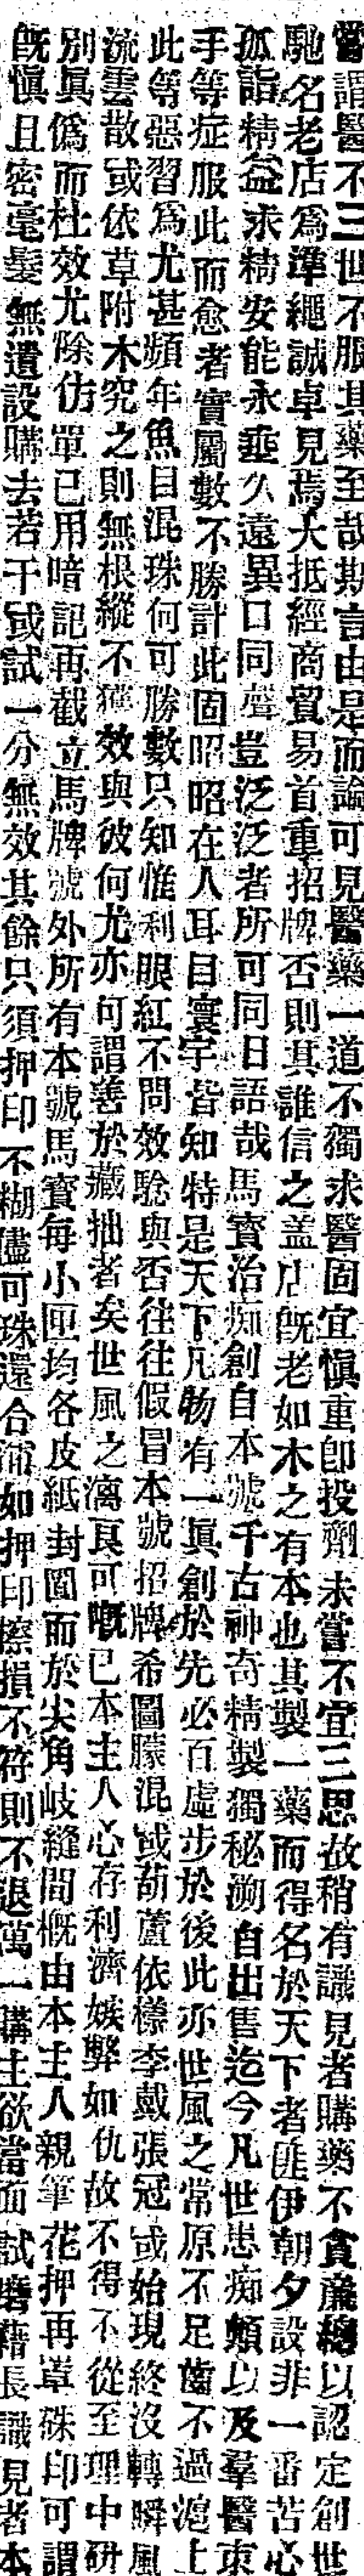 嘗謂醫不三世不服其藥至哉斯言由是而論可見醫藥一道不獨求醫固宜愼重卽投劑未嘗不宜三思故稍有識見者購藥不貪廉總以認定創世
馳名老店爲準繩誠卓見焉大抵經商貿易首重招牌否則其誰信之盖店旣老如木之有本也其製一藥而得名於天下者匪伊朝夕設非一番苦心
孤詣精益求精安能永垂久遠異口同聲豈泛泛者所可同日語哉馬寳治痴創自本號千古神奇精製獨秘溯自出售迄今凡世患痴顛以及羣醫束
手等症服此而愈者實屬數不勝計此固昭昭在人耳目寰宇皆知特是天下凡物有一眞創於先必百虛步於後此亦世風之常原不足齒不過滬上
此等惡習爲尤甚頻年魚目混珠何可勝數只知惟利眼紅不問效騐與否往往假冒本號招牌希圖朦混或葫蘆依樣李戴張冠或始現終沒轉瞬風
流雲散或依草附木究之則無根縱不獲效與彼何尤亦可謂善於藏拙者矣世風之漓良可嘅已本主人心存利濟嫉弊如仇故不得不從至理中研
別眞僞而杜效尤除仿單已用暗記再截立馬牌號外所有本號馬寳每小匣均各皮紙封固而於尖角岐縫間槪由本主人親筆花押再葢硃印可謂
旣愼且密毫髮無遺設購去若干或試一分無效其餘只須押印不糊儘可珠還合浦如押印擦損不符則不退萬一購主欲當面試磨藉長識見者本